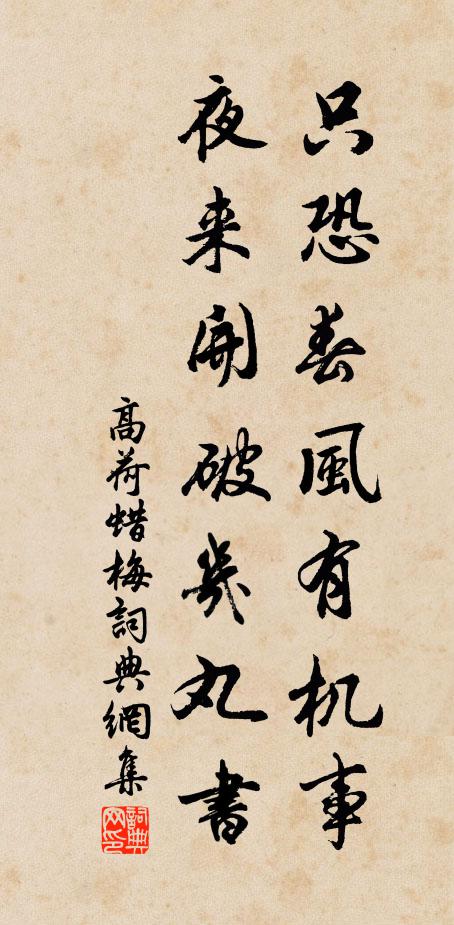 只恐春風有机事
夜来開破幾丸書
高荷蜡梅詞典網集
詞典網印